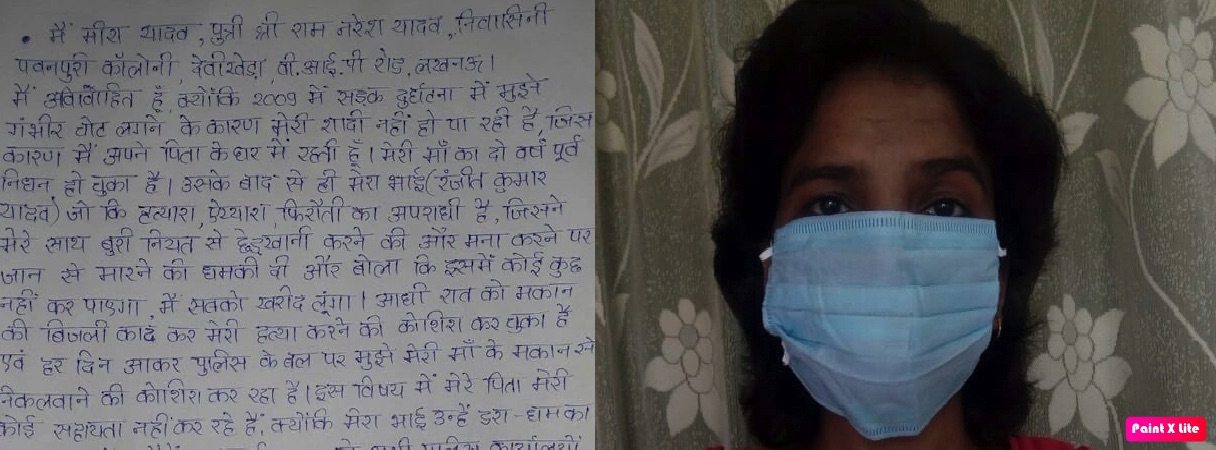 • मैं मीरा यादव, पुत्री श्री राम नरेश यादव, निवासिनी
पवनपुरी कॉलोनी, देवीखेड़ा, वी.आई.पी रोड, लखनऊ।
मैं अविवाहित हूँ, क्योंकि 2009 में सड़क दुर्घटना में मुझे
गंभीर चोट लगने के कारण मेरी शादी नहीं हो पा रही है, जिस
कारण मैं अपने पिता के घर में रहती हूँ। मेरी माँ का दो वर्ष पूर्व
निधन हो चुका है। उसके बाद से ही मेरा भाई (रंजीत कुमार
यादव) जो कि हत्यारा, ऐय्याश, फिरौती का अपराधी है, जिसने
मेरे साथ बुरी नियत से छेड़खानी करने की और मना करने पर
जान से मारने की धमकी दी और बोला कि इसमें कोई कुछ
नहीं कर पाएगा, मैं सबको खरीद लूंगा। आधी रात को मकान
की बिजली काट कर मेरी हत्या करने की कोशिश कर चुका है
एवं हर दिन आकर पुलिस के बल पर मुझे मेरी माँ के मकान से
निकलवाने की कोशिश कर रहा है। इस विषय में मेरे पिता मेरी
कोई सहायता नहीं कर रहे हैं, क्योंकि मेरा भाई उन्हें डरा-धमका
Paint X Lite